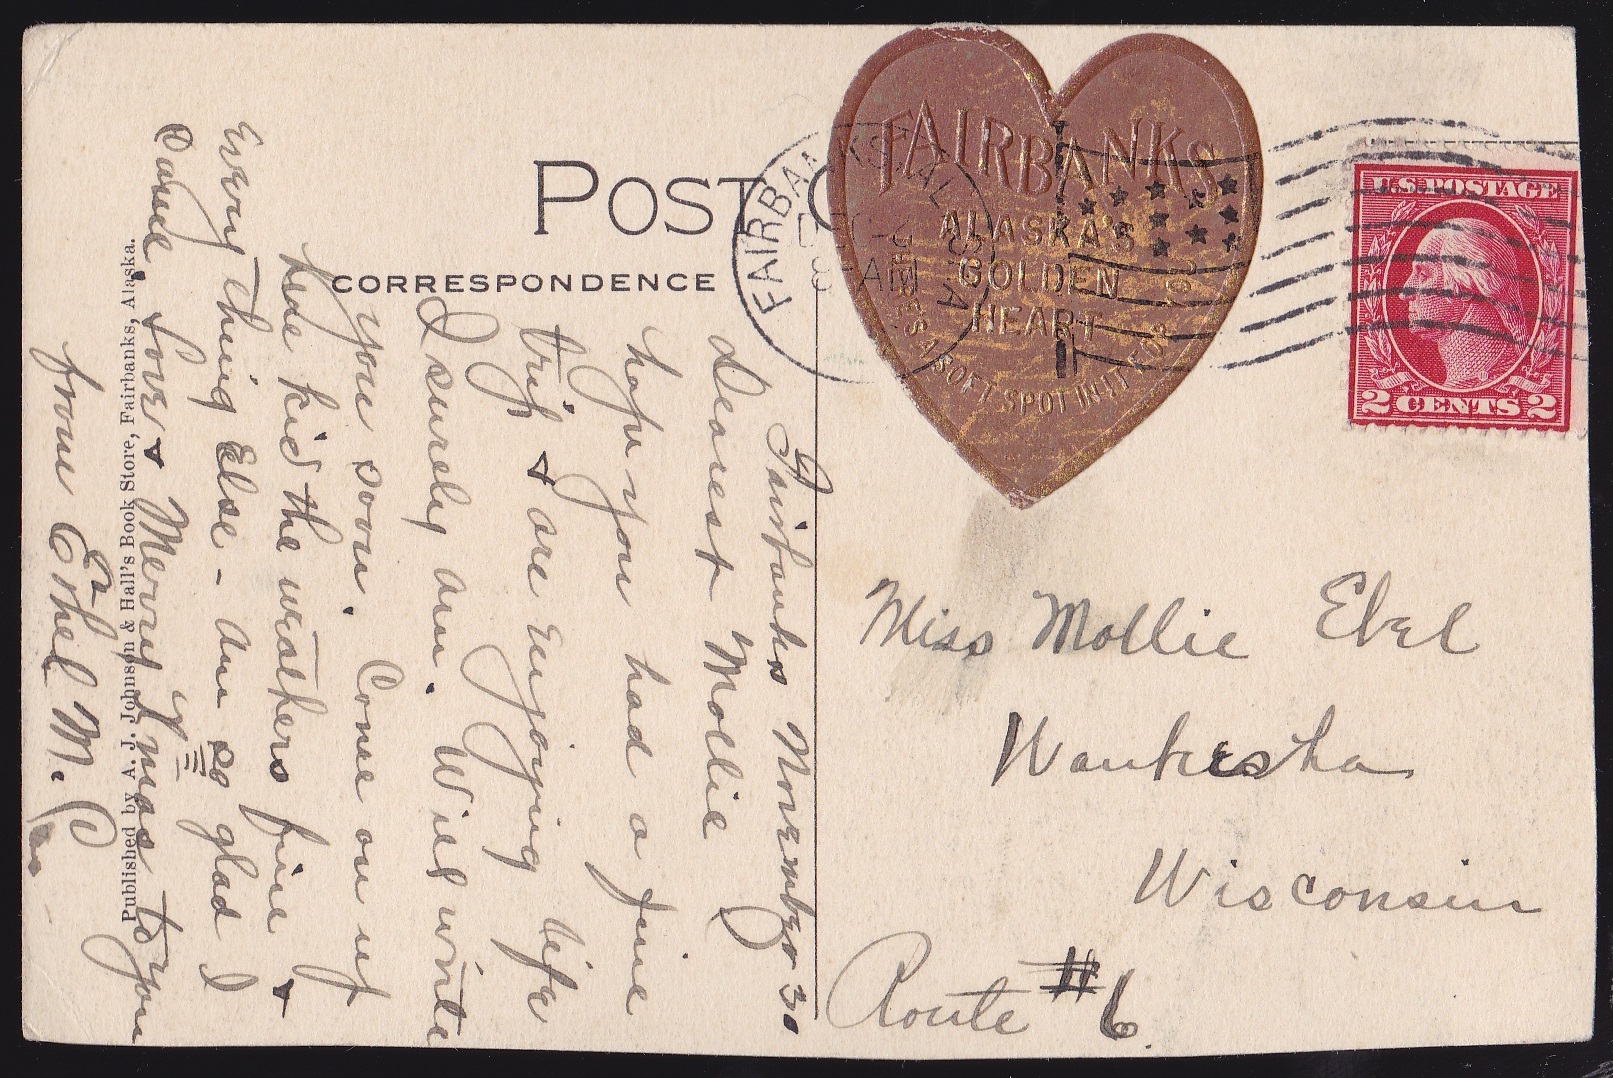 POST C
CORRESPONDENCE
Fairbanks November 30
Dearest Mollie
hope you had a fine
trip & are Enjoying life
I surely am. Will write
you soon. Come on up
here kid the weathers fine &
Every thing Else - am so glad I
came. Love & Merry Xmas to you
from Ethel M.
Published by A. J. Johnson & Hall's Book Store, Fairbanks, Alaska.
FAIRBANKS
ALASKA'S
GOLDEN
HEART
THERE'S A SOFT SPOT IN IT FOR YOU
FAIRBANKS ALASKA
AM
U.S. POSTAGE
2 CENTS 2
Miss Mollie Ebel
Waukesha
Wisconsin
Route #6.